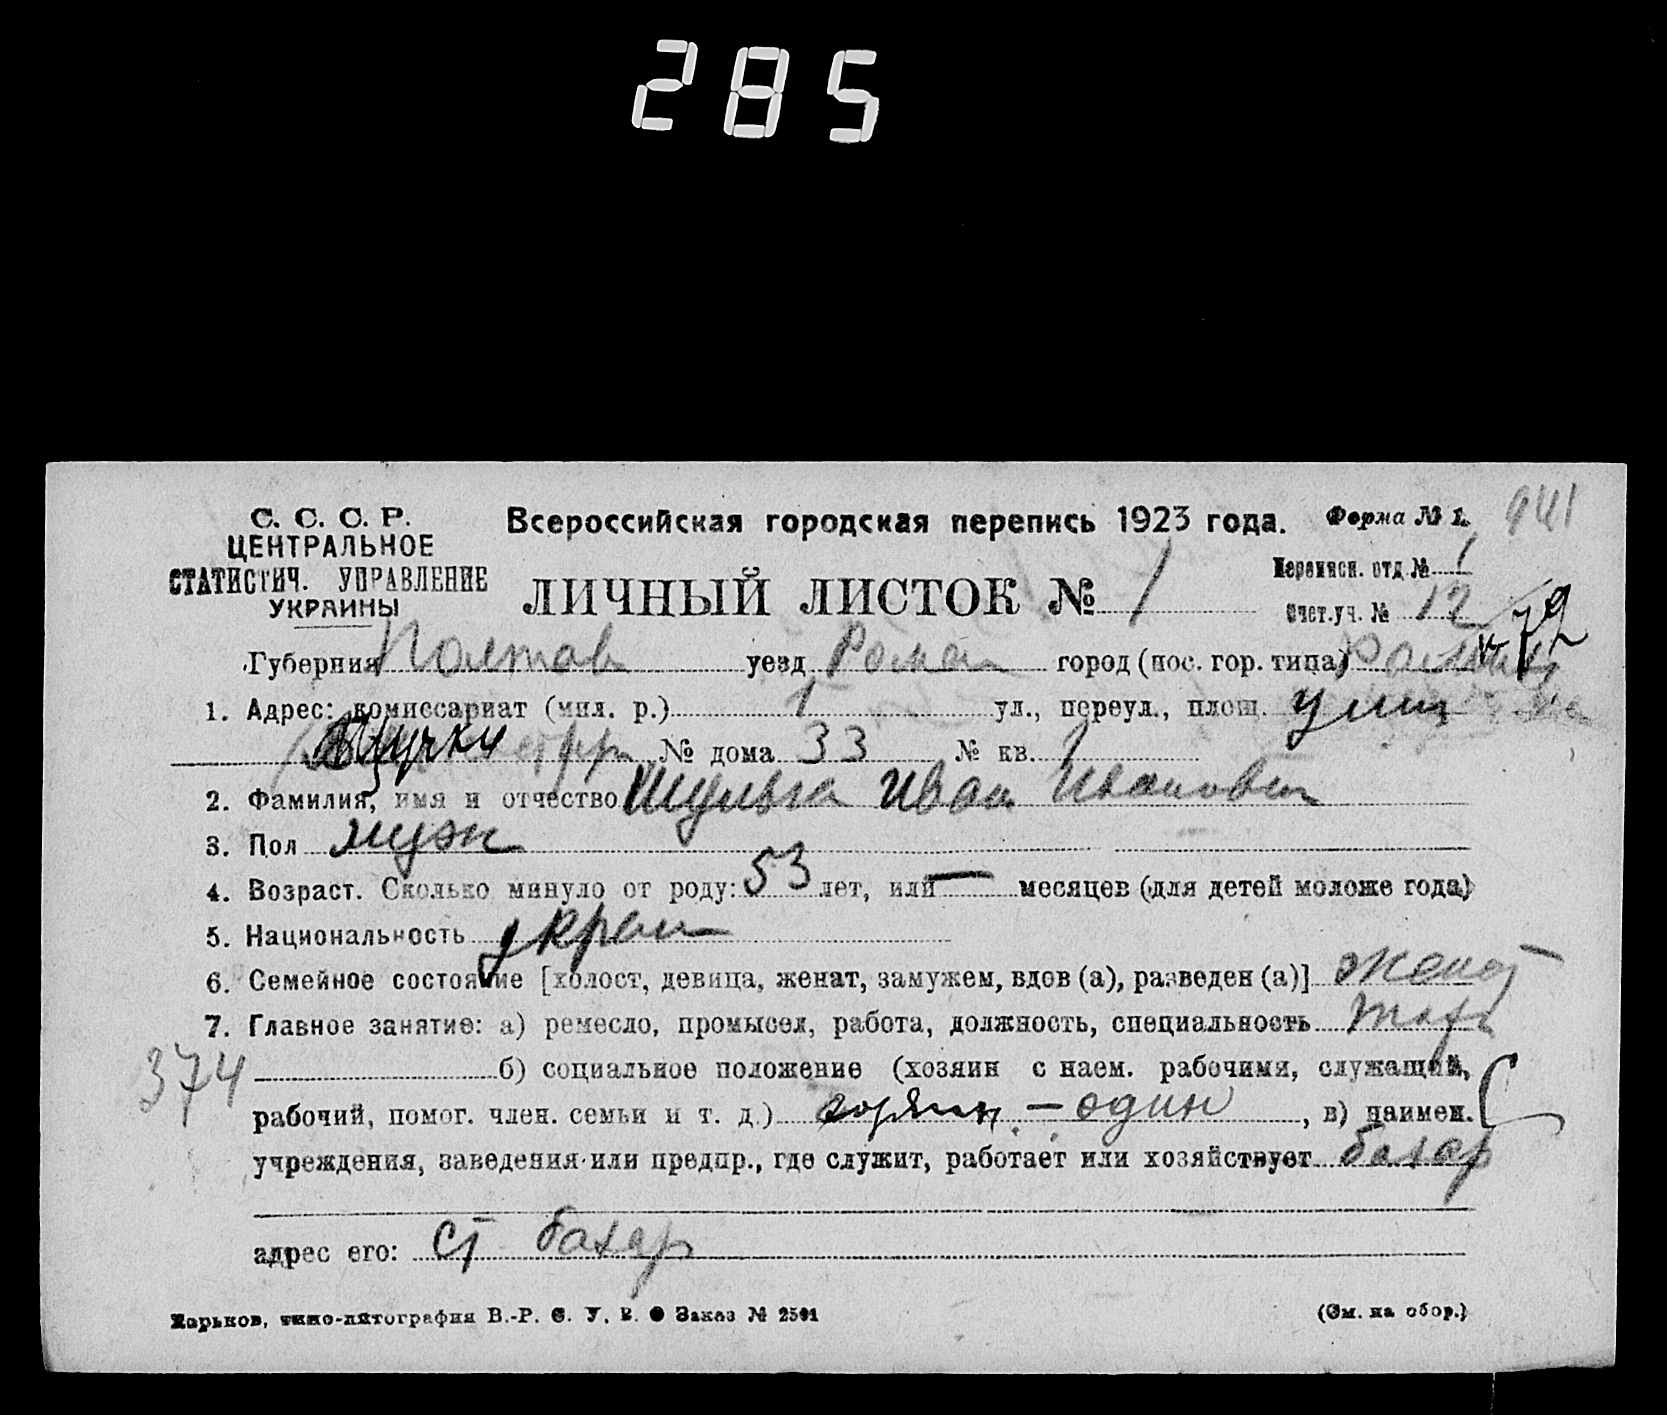 285
С. С. С. Р.
ЦЕНТРАЛЬНОЕ
СТАТИСТИЧ. УПРАВЛЕНИЕ
УКРАИНЫ
Всероссийская городская перепись 1923 года.
Форма № 1.
941
ЛИЧНЫЙ ЛИСТОК № 1
Переписн. отд. № 1
Счет. уч. № 12
79
Губерния Полтав уезд Ромен город (пос. гор. типа)
1. Адрес: комиссариат (мил. р.) 1 ул., переул., площ.
№ дома 33 № кв. 1
2. Фамилия, имя и отчество Шульга Иван Иванович
3. Пол муж
4. Возраст. Сколько минуло от роду: 53 лет, или — месяцев (для детей моложе года)
5. Национальность украин
6. Семейное состояние [холост, девица, женат, замужем, вдов (а), разведен (а)] женат
7. Главное занятие: а) ремесло, промысел, работа, должность, специальность торг
374
б) социальное положение (хозяин с наем. рабочими, служащий,
рабочий, помог. член. семьи и т. д.) – один, в) наимен.
учреждения, заведения или предпр., где служит, работает или хозяйствует базар
адрес его: ст базар
Харьков, типо-литография В.-Р. С. У. В. Заказ № 2501
(См. на обор.)